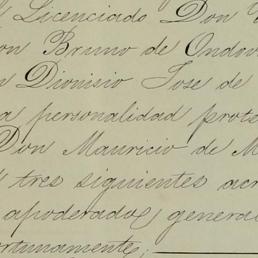 Licenciado Don
Bruno de Ondov
Dionisio Jose de
a personalidad proto
Don Mauricio de M
tres siguientes acr
apoderados genera
ortunamente;